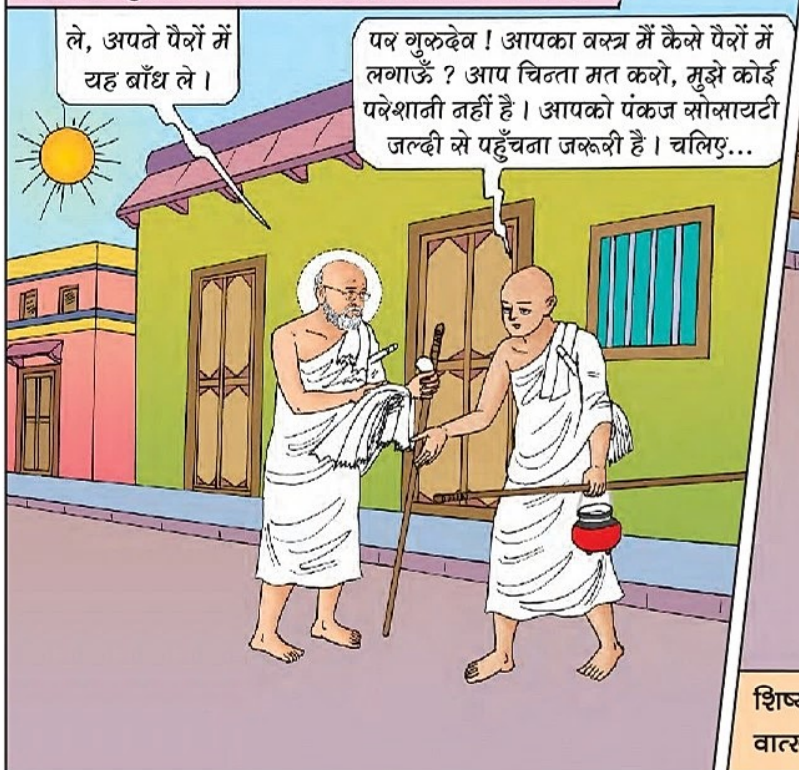 ले, अपने पैरों में
यह बाँध ले ।
पर गुरुदेव ! आपका वस्त्र मैं कैसे पैरों में
लगाऊँ ? आप चिन्ता मत करो, मुझे कोई
परेशानी नहीं है । आपको पंकज सोसायटी
जल्दी से पहुँचना जरूरी है । चलिए...